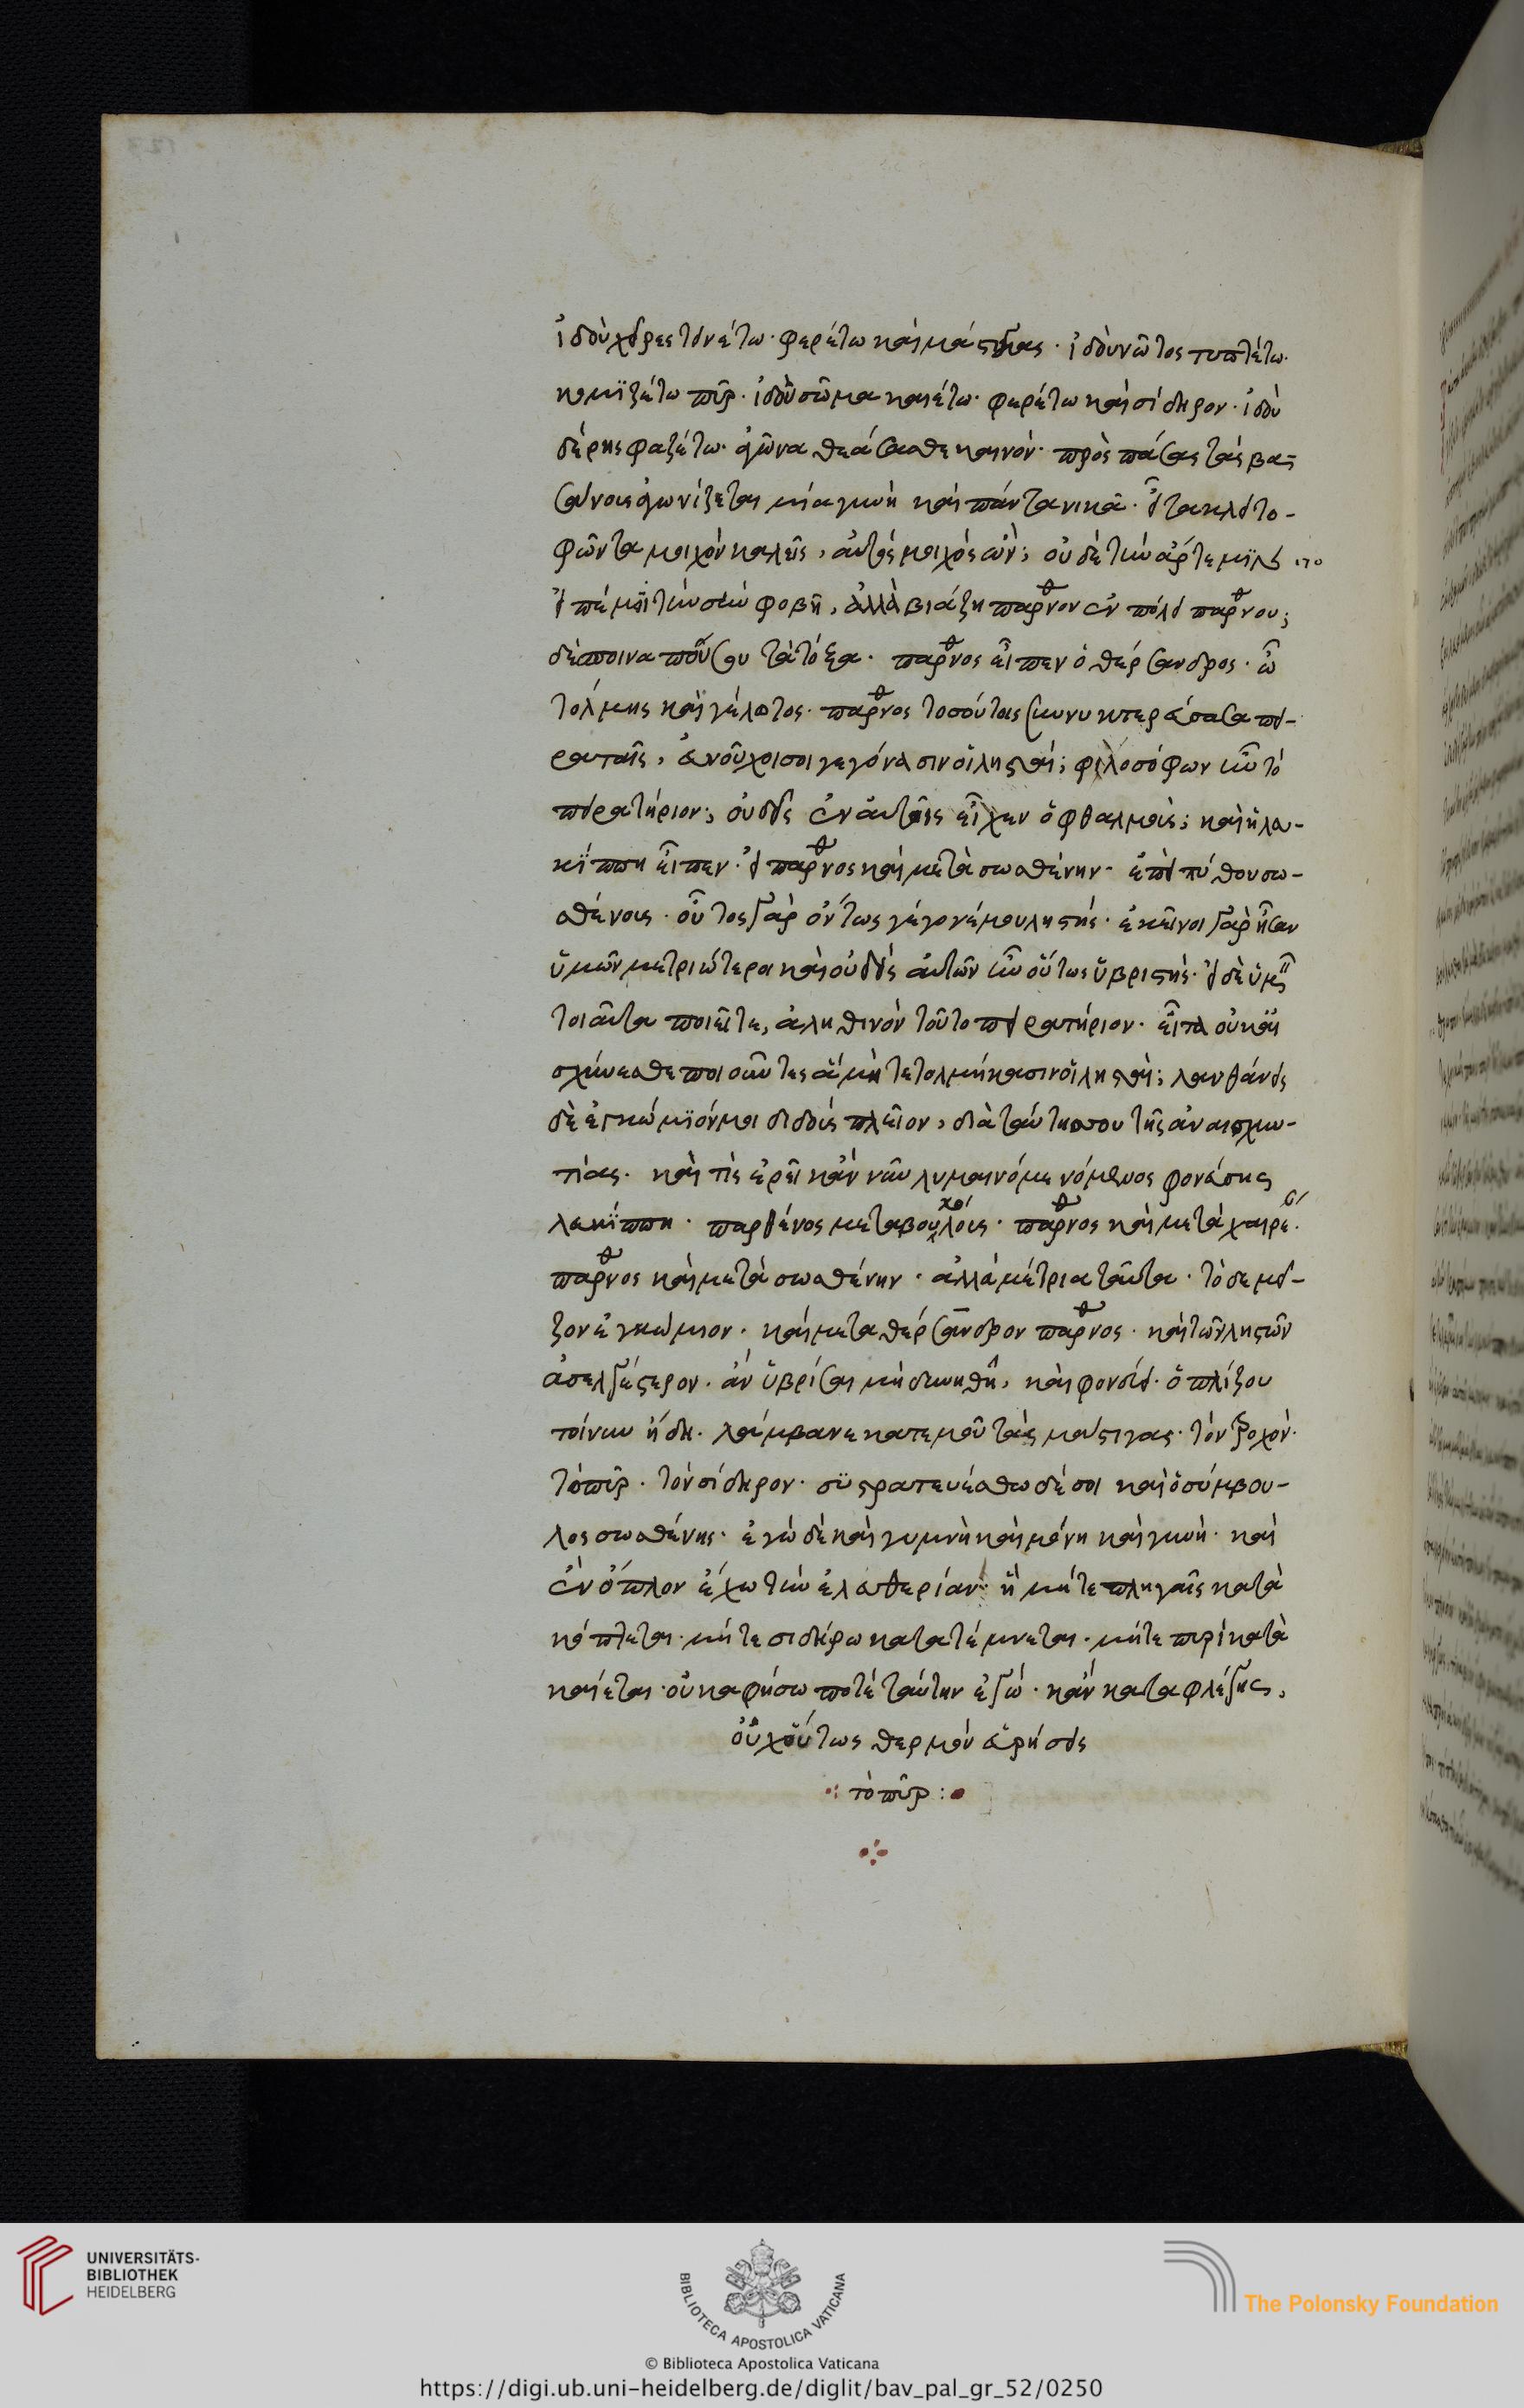 ἰδοὺ χεῖρες τεινέτω· φερέτω καὶ μάστιγας· ἰδοὺ νῶτος τυπτέτω·
κομϊζέτω πῦρ· ἰδοὺ σῶμα καιέτω· φερέτω καὶ σίδηρον· ἰδοὺ
δέρης φαζέτω· ἀγῶνα θεάσασθε καινόν· πρὸς πάσας τὰς βα-
σάνους ἀγωνίζεται μία γυνὴ καὶ πάντα νικᾶ· εἶτα κλειτο-
φῶντα μοιχὸν καλεῖς, αὐτὸς μοιχὸς ὤν; οὐδὲ τὴν ἄρτεμϊν
εἰπέ μοι τὴν σὴν φοβῆ, ἀλλὰ βιάζη παρθνον ἐν πόλει παρθνου;
δέσποινα ποῦ σου τὰ τόξα· παρθνος εἶπεν ὁ θέρσανδρος· ὦ
τόλμης καὶ γέλωτος· παρθνος τοσούτοις συννυκτερεύσασα πει-
ραταῖς, εὐνοῦχοι σοι γεγόνασιν οἵ λησταί; φιλοσόφων ἦν τὸ
πειρατήριον; οὐδεὶς ἐν αὐτοῖς εἶχεν ὀφθαλμοὺς; καὶ ἡ λευ-
κίππη εἶπεν· εἰ παρθνος καὶ μετὰ σωσθένην· ἐπεὶ πύθου σω-
σθένους· οὗτος γὰρ ὄντως γέγονέ μου ληστής· ἐκεῖνοι γὰρ ἦσαν
ὑμῶν μετριώτεροι καὶ οὐδεὶς αὐτῶν ἦν οὕτως ὑβριστής· εἰ δὲ ὑμεῖς
τοιαῦτα ποιεῖτε, ἀληθινὸν τοῦτο πειρατήριον· εἶτα οὐκ αἰ
σχύνεσθε ποιοῦντες ἃ μὴ τετολμήκασιν οἵ λησταὶ; λανθάνεις
δὲ ἐγκώμϊόν μοι διδοὺς πλεῖον, διὰ ταύτης σου τῆς ἀναισχυν-
τίας· καὶ τὶς ἐρεῖ κἂν νῦν λυμαινόμε νόμενος φονεύσης
λευκίππη· παρθένος μετὰ βουκόλους· παρθνος καὶ μετὰ χαιρέ·
παρθνος καὶ μετὰ σωσθένην· ἀλλὰ μέτρια ταῦτα· τὸ δὲ μεῖ-
ζον ἐγκώμιον· καὶ μετὰ θέρσανδρον παρθνος· καὶ τῶν ληστῶν
ἀσελγέστερον· ἂν ὑβρίσαι μὴ δυνηθῆ, καὶ φονεύει· ὁπλίζου
τοίνυν ἤδη· λάμβανε κατ' ἐμοῦ τὰς μάστιγας· τὸν τροχόν·
τὸ πῦρ· τὸν σίδηρον· συστρατευέσθω δέ σοι καὶ ὁ σύμβου-
λος σωσθένης· ἐγὼ δὲ καὶ γυμνὴ καὶ μόνη καὶ γυνὴ· καὶ
ἓν ὅπλον ἔχω τὴν ἐλευθερίαν· ἣ μήτε πληγαῖς κατὰ
κόπτεται· μήτε σιδήρω κατατέμνεται· μήτε πυρὶ κατὰ
καίεται· οὐκ ἀφήσω ποτὲ ταύτην ἐγώ· κἂν καταφλέγης,
οὐχ οὕτως θερμὸν εὑρήσεις
τὸ πῦρ:
UNIVERSITÄTS-
BIBLIOTHEK
HEIDELBERG
BIBLIOTECA APOSTOLICA VATICANA
© Biblioteca Apostolica Vaticana
The Polonsky Foundation
https://digi.ub.uni-heidelberg.de/diglit/bav_pal_gr_52/0250